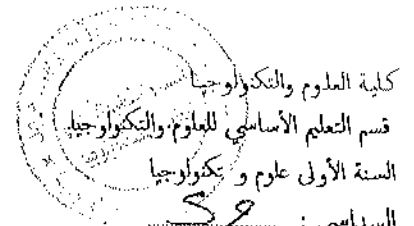 كلية العلوم والتكنولوجيا
قسم التعليم الأساسي للعلوم والتكنولوجيا
السنة الأولى علوم و تكنولوجيا
السداسي :